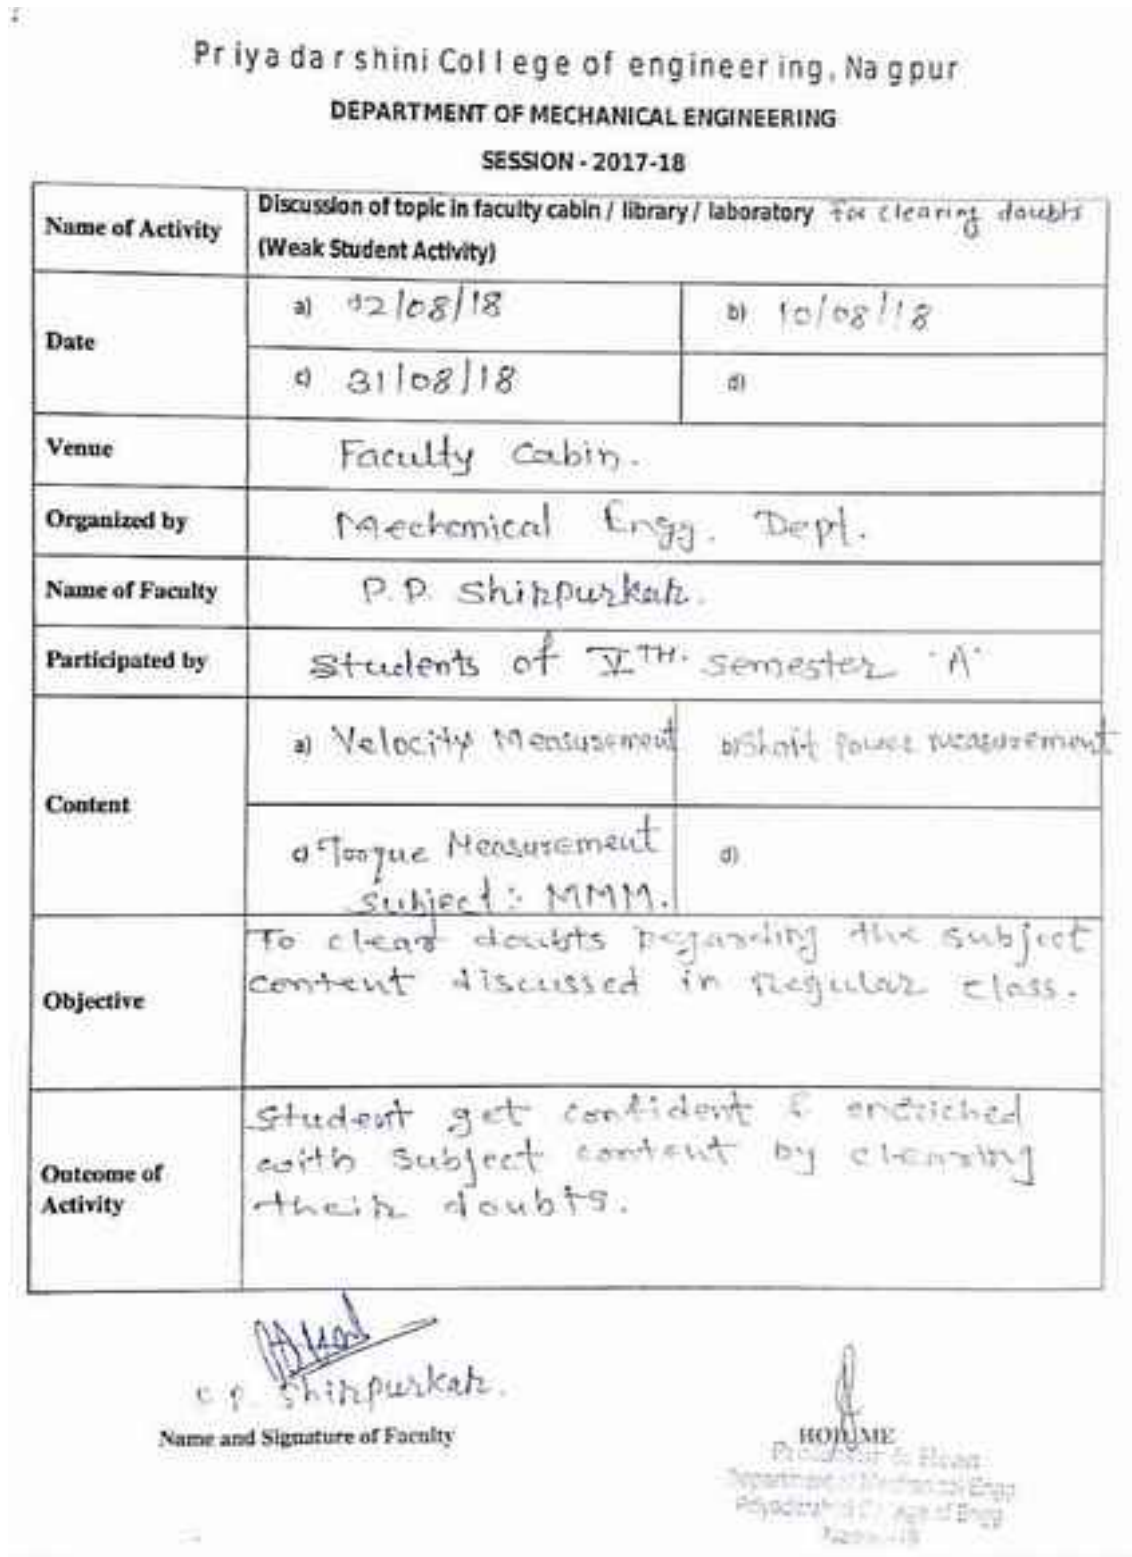 Priyadarshini College of engineering, Nagpur
DEPARTMENT OF MECHANICAL ENGINEERING
SESSION - 2017-18
Name of Activity
Discussion of topic in faculty cabin / library / laboratory for clearing doubts
(Weak Student Activity)
Date
a) 02/08/18
b) 10/08/18
c) 31/08/18
d)
Venue
Faculty Cabin.
Organized by
Mechanical Engg. Dept.
Name of Faculty
P.P. Shirpurkar.
Participated by
Students of VTH. semester 'A'
Content
a) Velocity Measurement
b) Shaft Power measurement
c) Torque Measurement
subject :- MMM.
d)
Objective
To clear doubts regarding the subject
content discussed in Regular class.
Outcome of
Activity
Student get confident & enriched
with subject content by clearing
their doubts.
P. Shirpurkar.
Name and Signature of Faculty
HOD,ME
Professor & Head
Department of Mechanical Engg
Priyadarshini College of Engg